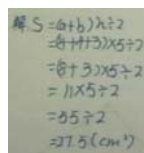 解 S=(a+b)h÷2
=(8+3)×5÷2
=(8+3)×5÷2
=11×5÷2
=55÷2
=27.5(cm²)